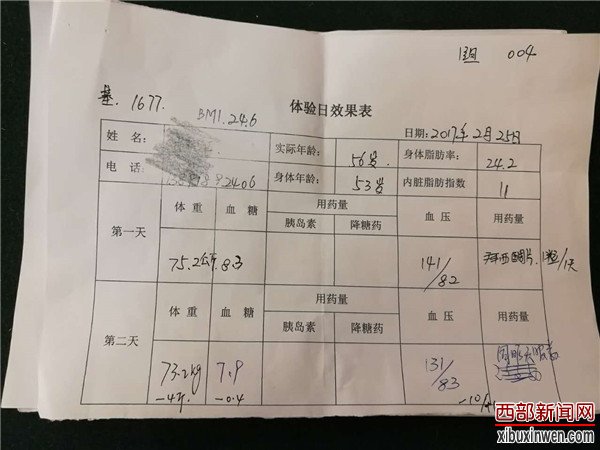 004
基. 1677.
BMI.24.6
体验日效果表
日期: 2017年2月25日
姓 名:
实际年龄: 56岁
身体脂肪率: 24.2
电 话: 2406
身体年龄: 53岁
内脏脂肪指数 11
第一天
体 重 血 糖 用药量 血 压 用药量
胰岛素 降糖药
75.2公斤 8.3 141/82
1粒/1天
第二天
体 重 血 糖 用药量 血 压 用药量
胰岛素 降糖药
73.2kg 7.9 131/83
-4斤 -0.4 -10
西部新闻网
xibuxinwen.com